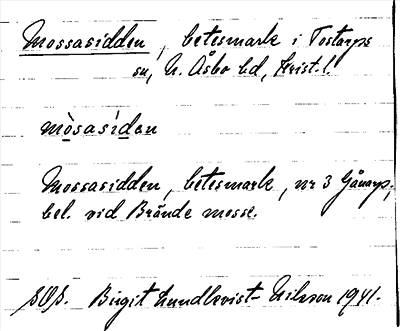 Mossasidden, betesmark i Tostarps
sn, N. Åsbo hd, Krist. l.
mòsasídan
Mossasidden, betesmark, nr 3 Gånarp,
bel. vid Brände mosse.
Birgit Lundkvist-Nilsson 1941.